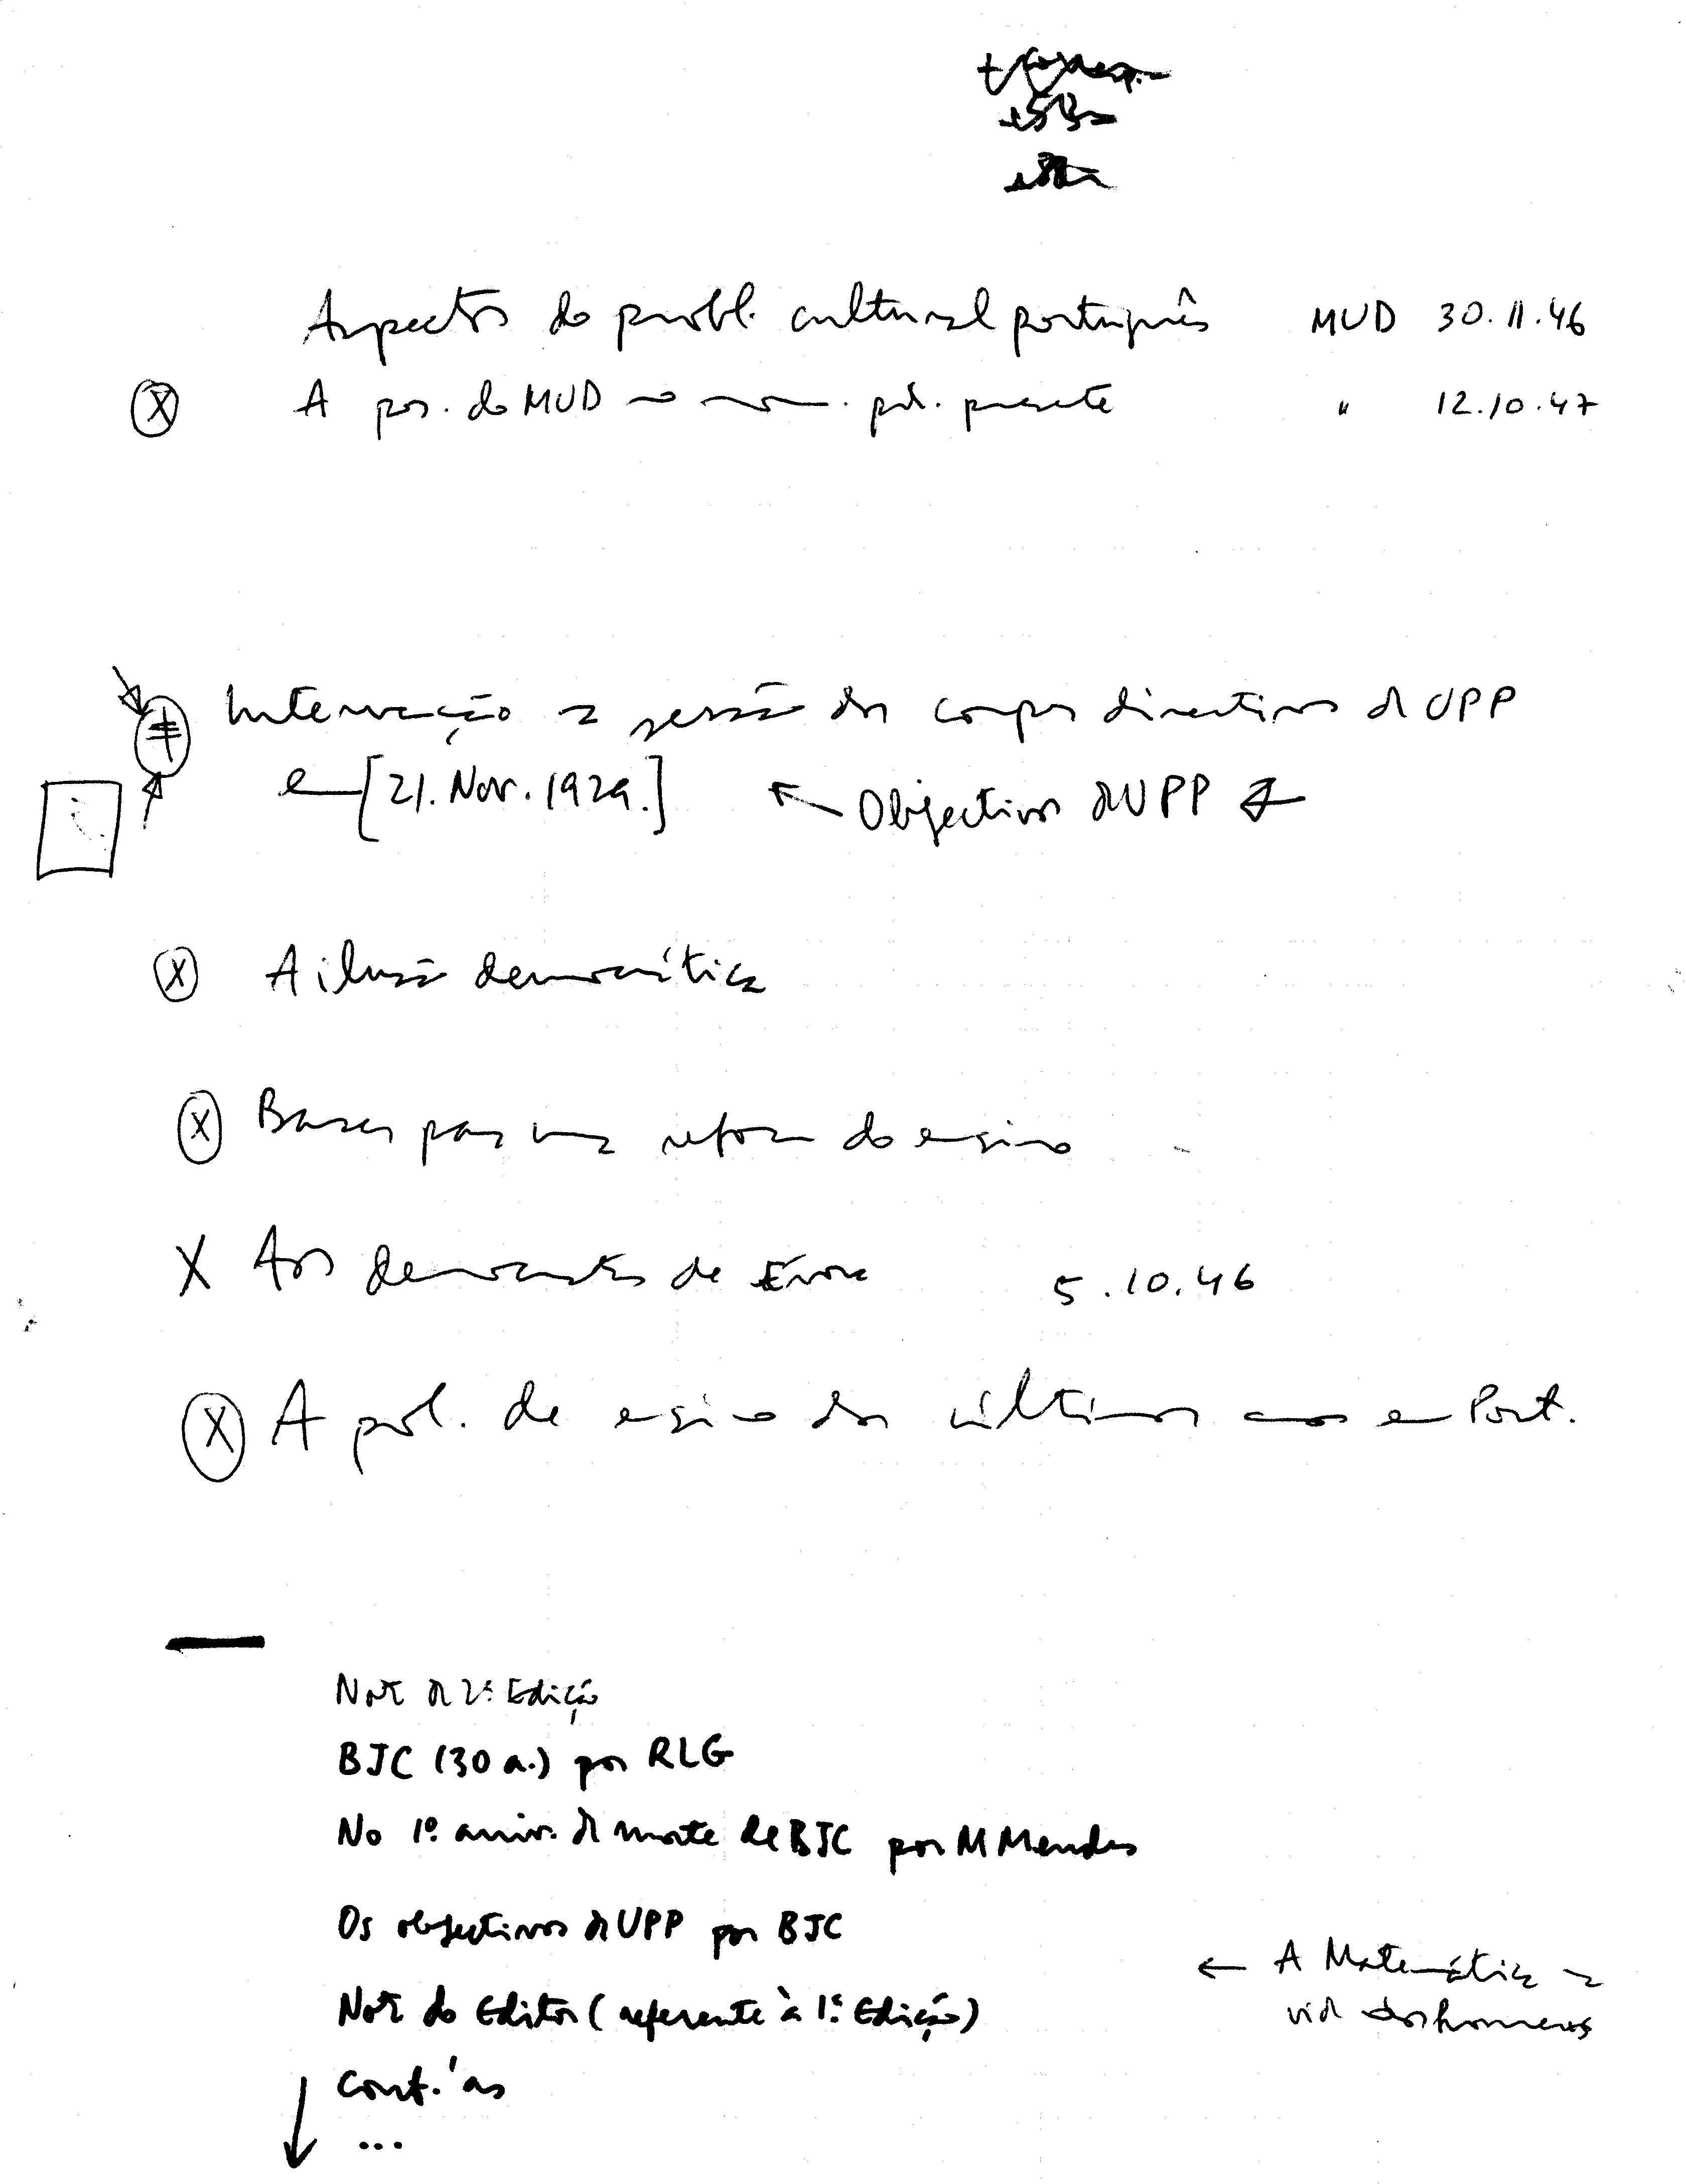 Aspectos do probl. cultural português MUD 30.11.46
X A pos. do MUD no mom. pol. presente " 12.10.47
Intervenção na sessão dos corpos directivos da UPP
em [21. Nov. 1929.] ← Objectivos da UPP ←
X A ilusão democrática
X Bases para uma reforma do ensino
X Aos democratas de Évora 5.10.46
X A pol. de ensino dos últimos anos em Port.
Nota da 2ª Edição
BJC (30 a.) por RLG
No 1º aniv. da morte de BJC por M Mendes
Os objectivos da UPP por BJC
Nota do Editor (referente à 1ª Edição)
← A Matemática na
vida dos homens
Conf.'as
...